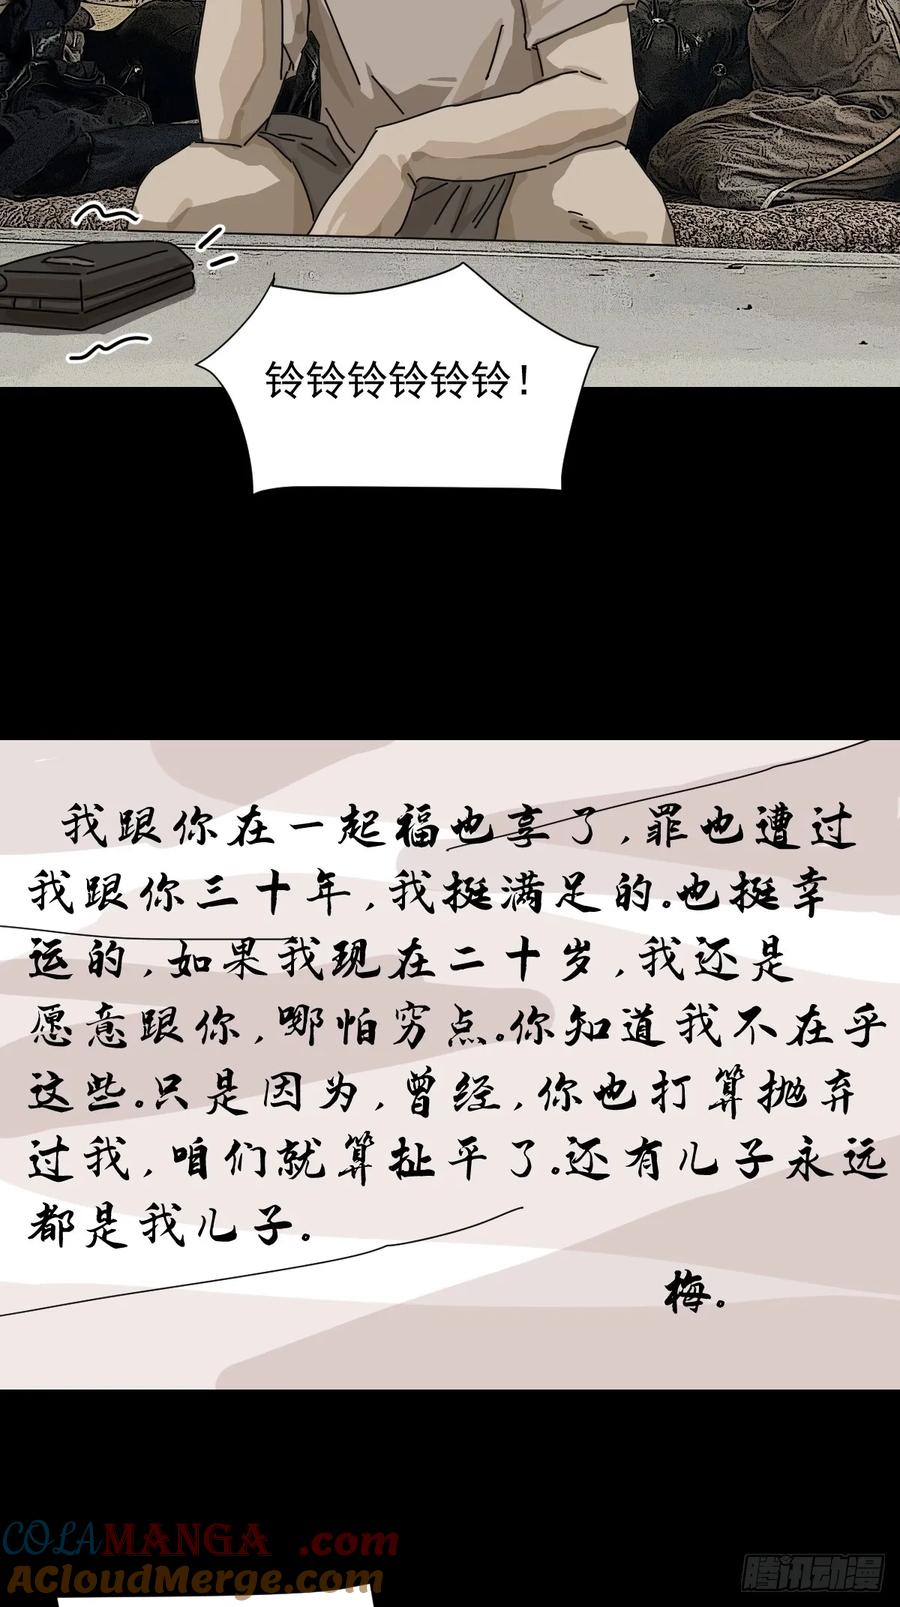 铃铃铃铃铃铃！
我跟你在一起福也享了，罪也遭过
我跟你三十年，我挺满足的。也挺幸
运的，如果我现在二十岁，我还是
愿意跟你，哪怕穷点。你知道我不在乎
这些。只是因为，曾经，你也打算抛弃
过我，咱们就算扯平了。还有儿子永远
都是我儿子。
梅。
COLAMANGA.com
AcloudMerge.com
腾讯动漫